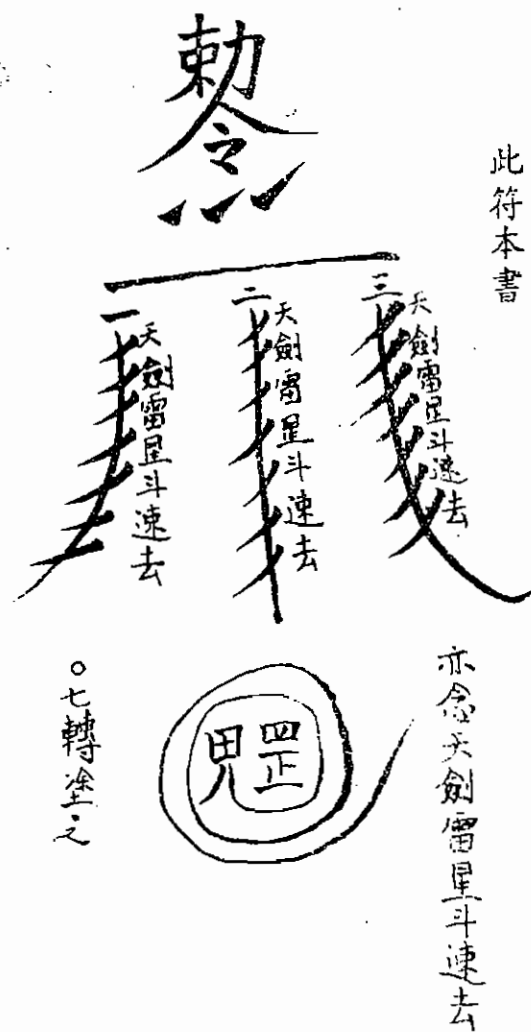 此符本書
勅令
三天劍雷星斗速去
二天劍雷星斗速去
一天劍雷星斗速去
亦念天劍雷星斗速去
罡
○七轉塗之